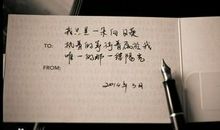 我只是一朵向日葵
TO: 执着的等待着属于我
唯一的那一缕阳光
FROM:
2014年3月